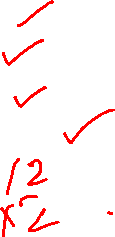 12
x2